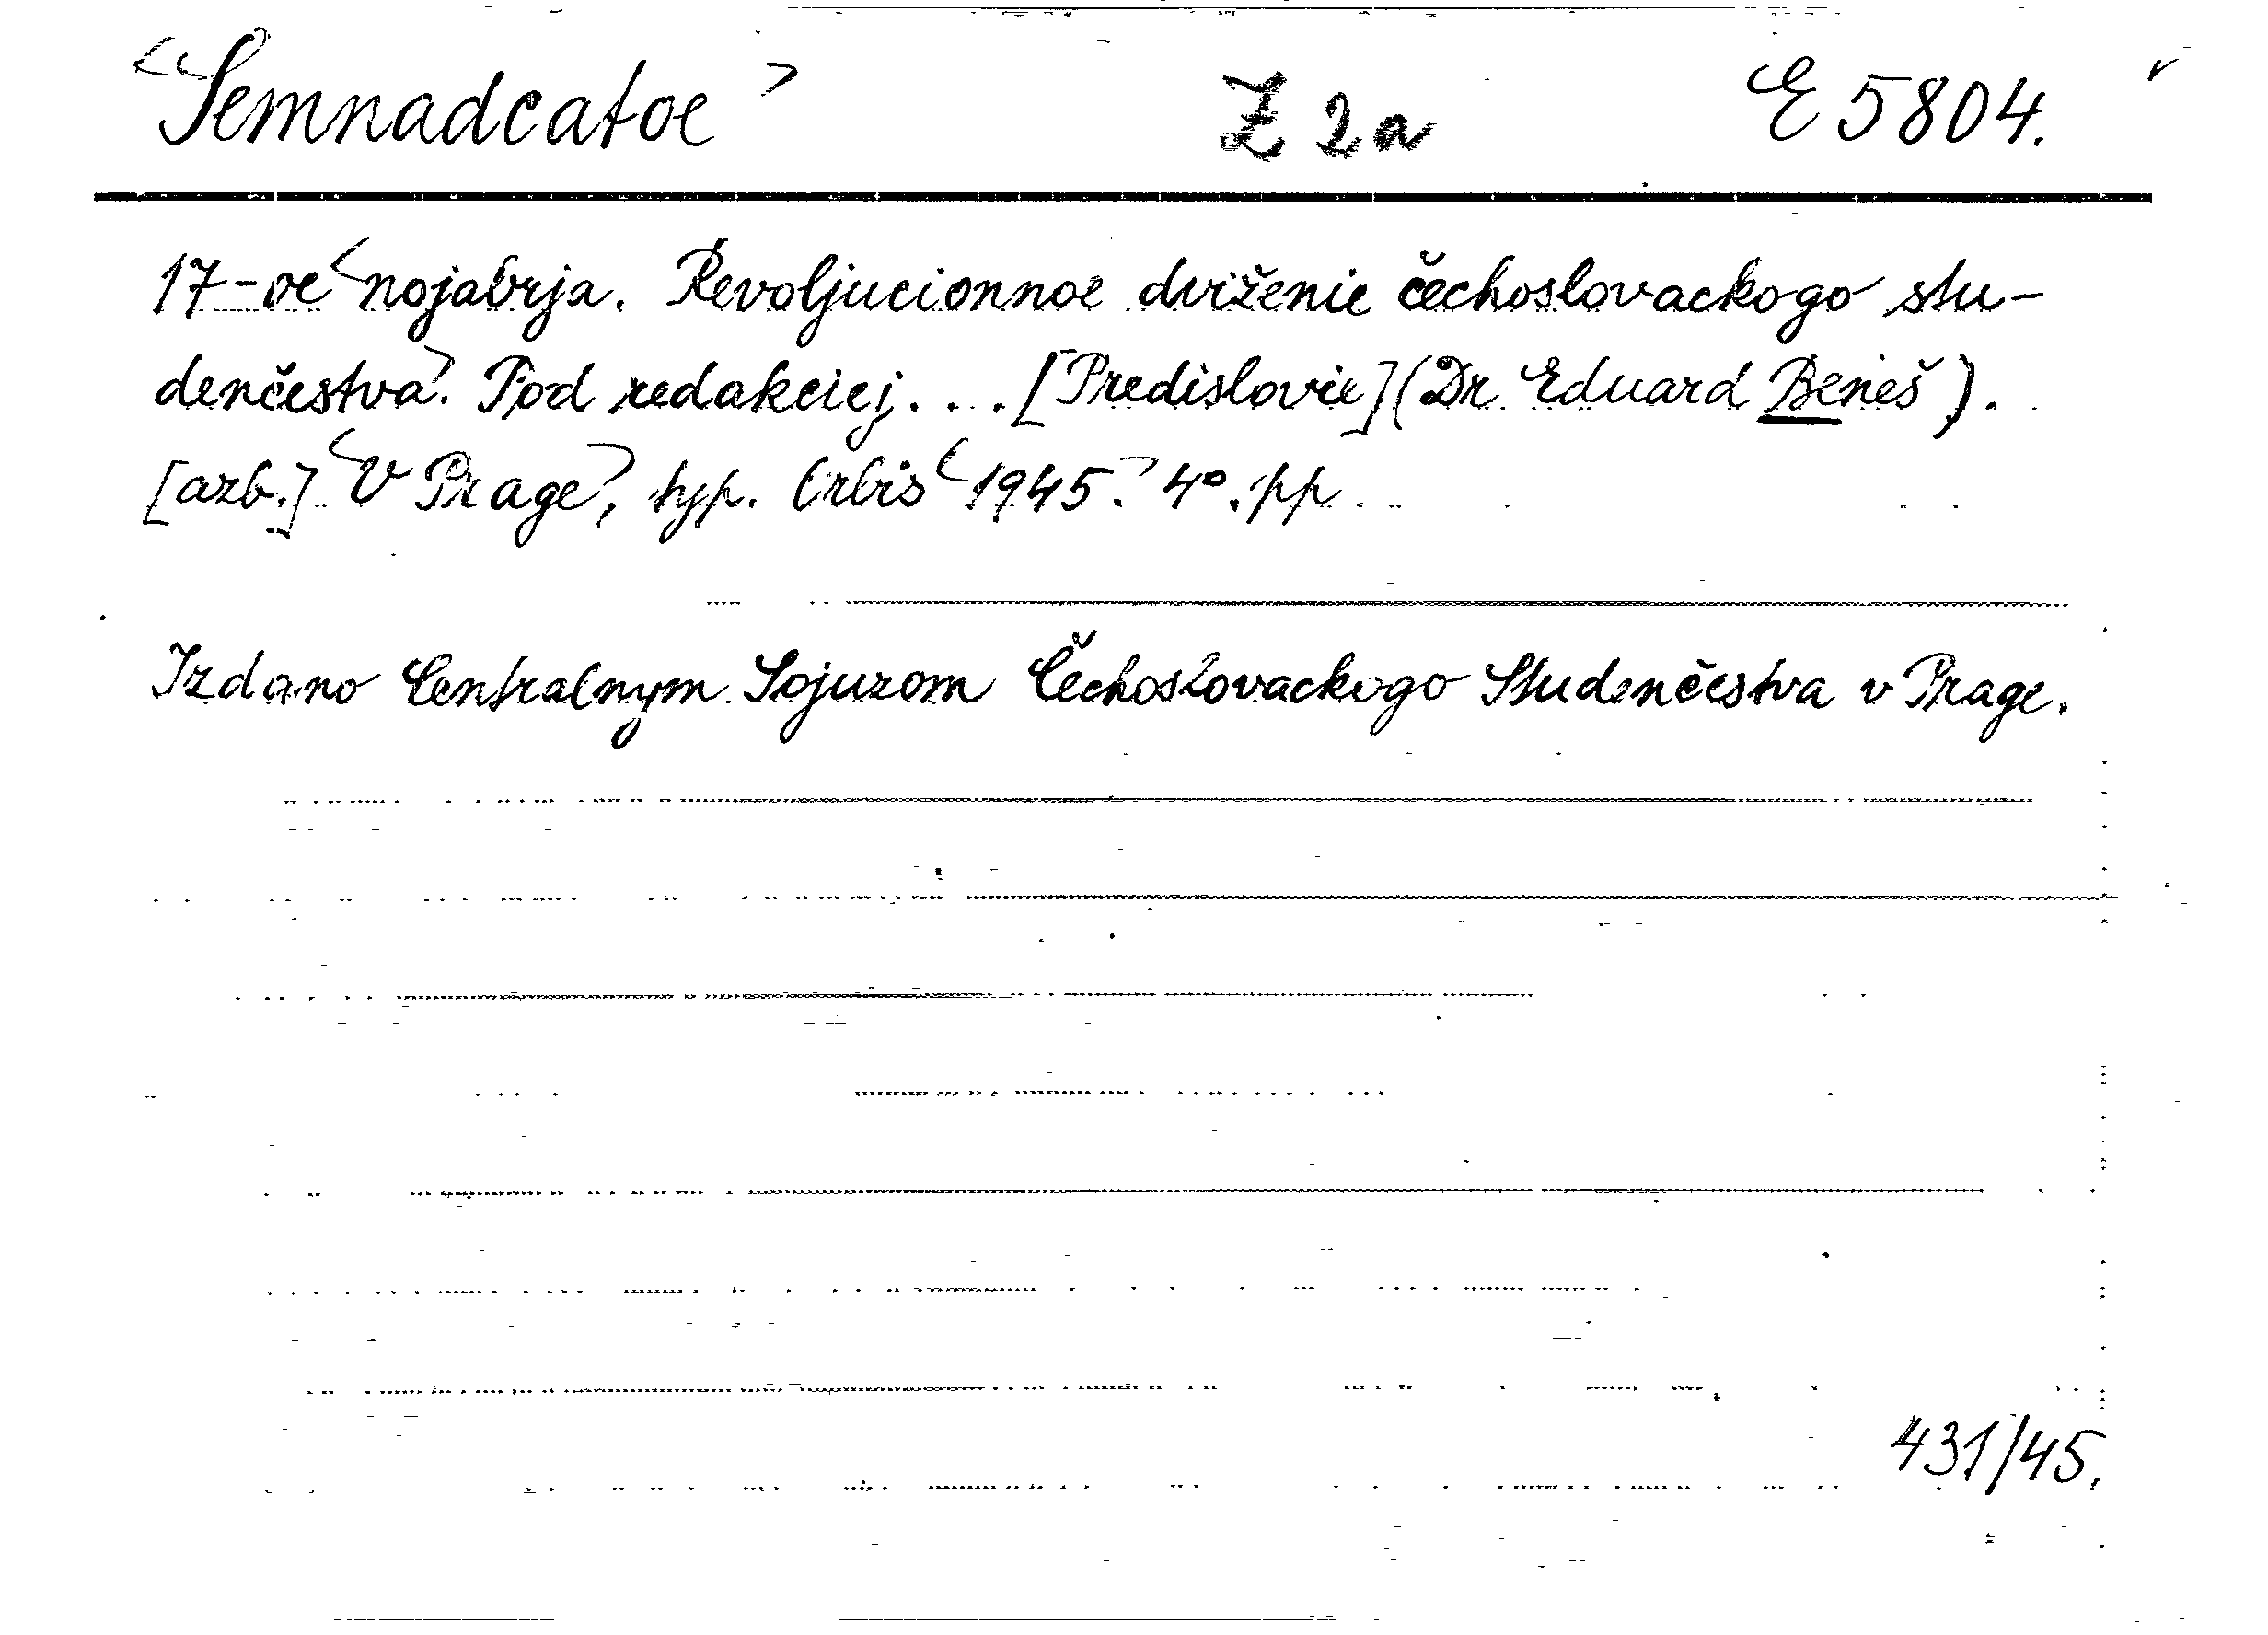 <Semnadcatoe> Z 2a E 5804.
17-oe <nojabrja. Revoljucionnoe dviženie čechoslovackogo stu-
denčestva>. Pod redakciej. . . . [Predislovie] (Dr. Eduard Beneš).
[azb.] <V Prage>, typ. Orbis <1945>. 4°. pp.
Izdano Centralnym Sojuzom Čechoslovackogo Studenčestva v Prage.
431/45.